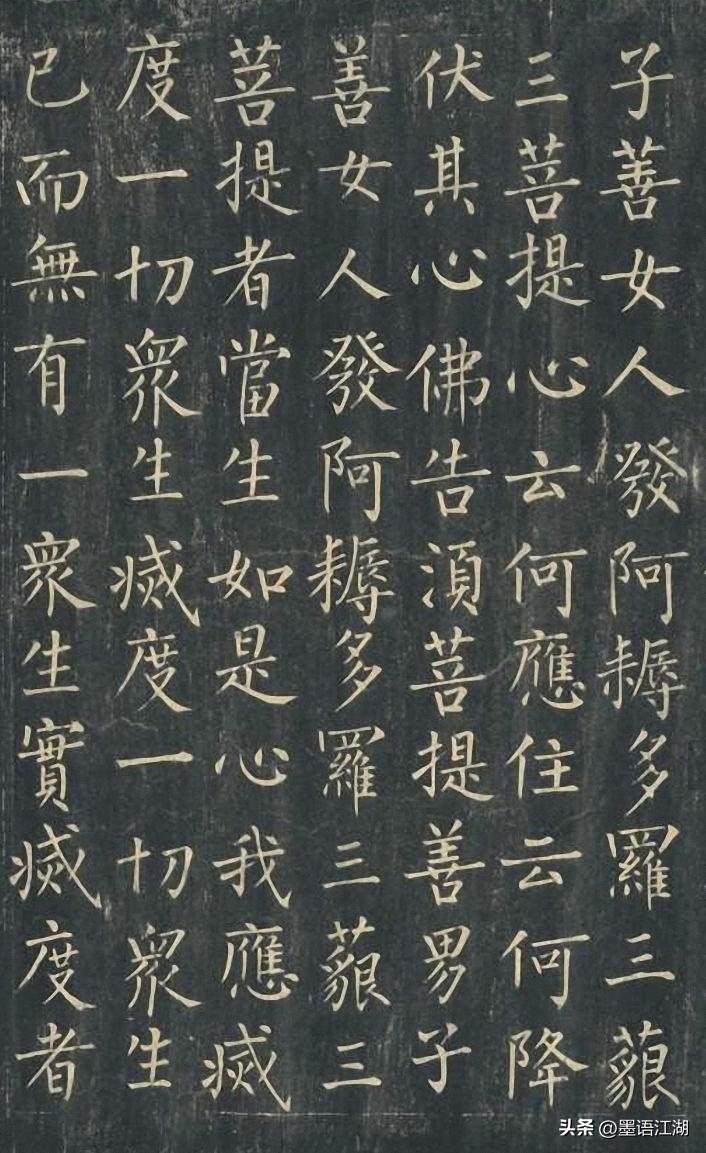 子善女人發阿耨多羅三藐
三菩提心云何應住云何降
伏其心佛告須菩提善男子
善女人發阿耨多羅三藐三
菩提者當生如是心我應滅
度一切衆生滅度一切衆生
已而無有一衆生實滅度者
头条 @墨语江湖